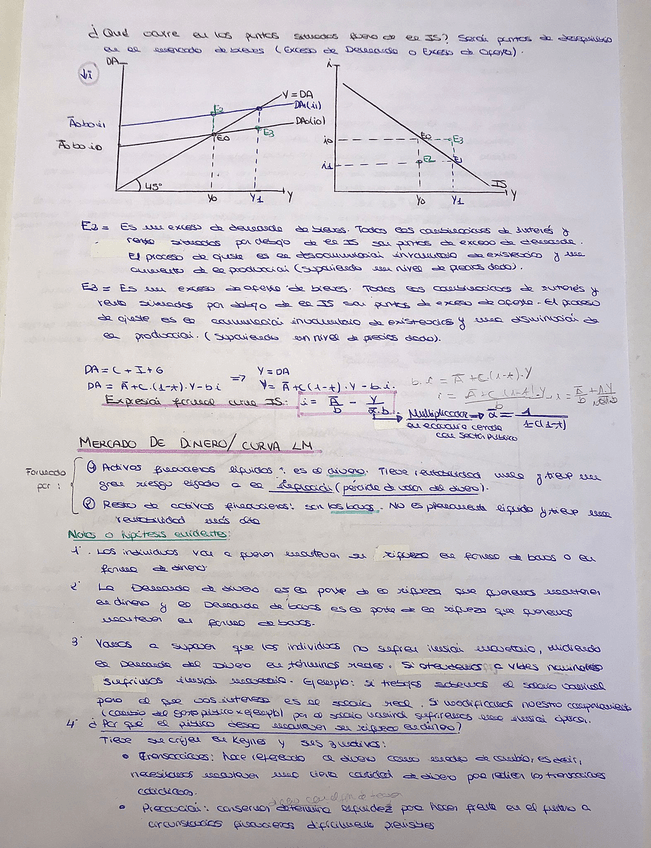 ¿Qué ocurre en los puntos situados fuera de la IS? Serán puntos de desequilibrio
en el mercado de bienes (Exceso de Demanda o Exceso de oferta).
↓i
DA
Y = DA
DA1(i1)
DA0(i0)
Ā0 b0 i1
Ā0 b0 i0
E2
E0
E3
45°
Y0
Y1
Y
i
i0
i1
E0
E3
E2
E1
IS
Y0
Y1
Y
E2 = Es un exceso de demanda de bienes. Todas las combinaciones de interés y
renta situados por debajo de la IS son puntos de exceso de demanda.
El proceso de ajuste es la desacumulación involuntaria de existencias y un
aumento de la producción (suponiendo un nivel de precios dado).
E3 = Es un exceso de oferta de bienes. Todas las combinaciones de interés y
renta situados por debajo de la IS son puntos de exceso de oferta. El proceso
de ajuste es la acumulación involuntaria de existencias y una disminución de
la producción. (Suponiendo un nivel de precios dado).
DA = C + I + G
Y = DA
DA = Ā + C·(1-t)·Y - bi
=> Y = Ā + C(1-t)·Y - b·i.
b·i = Ā + C(1-t)·Y
Expresión formal curva IS:
i = Ā/b - Y/ᾱ·b
Multiplicador → ᾱ = 1/1-C(1-t)
en economía cerrada
con Sector Público
MERCADO DE DINERO/ CURVA LM
Formado
por:
① Activos financieros líquidos: es el dinero. Tiene rentabilidad nula y tiene un
gran riesgo ligado a la inflación (pérdida de valor del dinero).
② Resto de activos financieros: son los bonos. No es plenamente líquido y tiene una
rentabilidad más alta
Notas o hipótesis evidentes:
1º. Los individuos van a querer mantener su riqueza en forma de bonos o en
forma de dinero.
2º La Demanda de dinero es la parte de la riqueza que queremos mantener
en dinero y la Demanda de bonos es la parte de la riqueza que queremos
mantener en forma de bonos.
3º Vamos a suponer que los individuos no sufren ilusión monetaria, midiendo
la Demanda del Dinero en términos reales. Si atendemos a valores nominales
sufrimos ilusión monetaria. Ejemplo: si trabajo sabemos el salario nominal
pero al que nos interesa es al salario real. Si modificamos nuestro comportamiento
por el salario nominal sufriremos una ilusión óptica.
4º ¿Por qué el público desea mantener su riqueza en dinero?
Tiene su origen en Keynes y sus 3 motivos:
• Transacciones: hace referencia al dinero como medio de cambio, es decir,
necesitamos mantener una cierta cantidad de dinero para realizar las transacciones
cotidianas.
• Precaución: conservar determina liquidez para hacer frente en el futuro a
circunstancias financieras difícilmente previstas